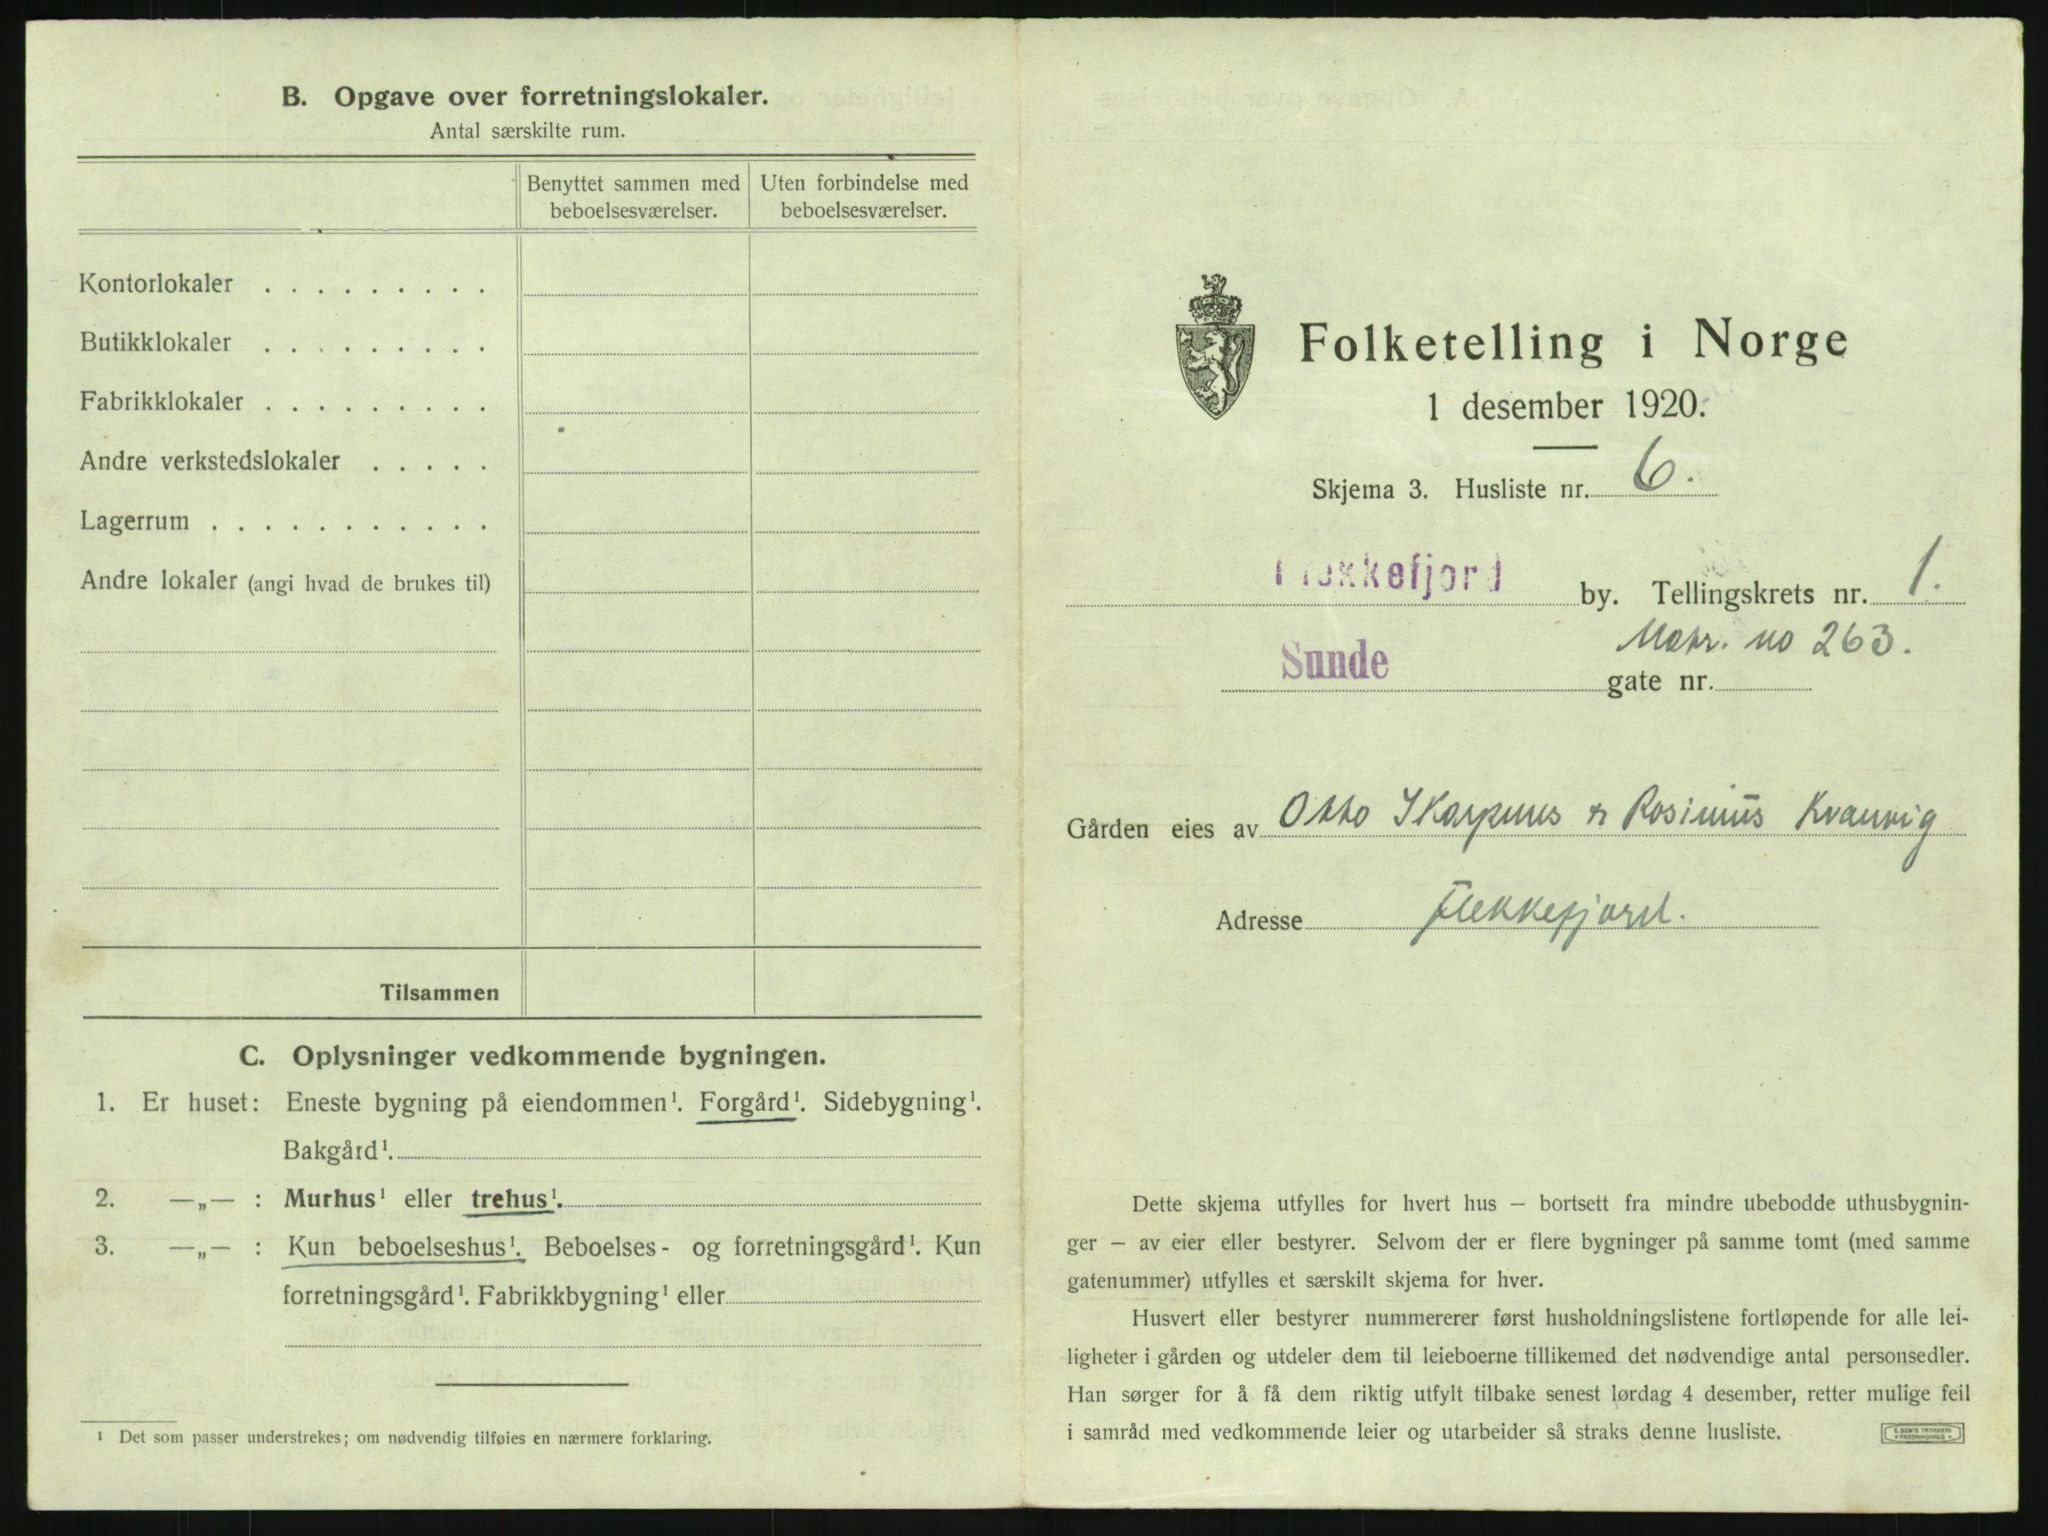 B. Opgave over forretningslokaler.
Antal særskilte rum.
Benyttet sammen med beboelsesværelser.
Uten forbindelse med beboelsesværelser.
Kontorlokaler . . . . . . . . .
Butikklokaler . . . . . . . . .
Fabrikklokaler . . . . . . . . .
Andre verkstedslokaler . . . . .
Lagerrum . . . . . . . . . . .
Andre lokaler (angi hvad de brukes til)
Tilsammen
C. Oplysninger vedkommende bygningen.
1. Er huset: Eneste bygning på eiendommen¹. Forgård¹. Sidebygning¹.
Bakgård¹.
2. —„— : Murhus¹ eller trehus¹.
3. —„— : Kun beboelseshus¹. Beboelses- og forretningsgård¹. Kun
forretningsgård¹. Fabrikkbygning¹ eller
¹ Det som passer understrekes; om nødvendig tilføies en nærmere forklaring.
Folketelling i Norge
1 desember 1920.
Skjema 3. Husliste nr. 6.
Flekkefjord by. Tellingskrets nr. 1.
Matr. no 263.
Sunde gate nr.
Gården eies av Otto & Rosinius Kvanvig
Adresse Flekkefjord.
Dette skjema utfylles for hvert hus – bortsett fra mindre ubebodde uthusbygnin-
ger – av eier eller bestyrer. Selvom der er flere bygninger på samme tomt (med samme
gatenummer) utfylles et særskilt skjema for hver.
Husvert eller bestyrer nummererer først husholdningslistene fortløpende for alle lei-
ligheter i gården og utdeler dem til leieboerne tillikemed det nødvendige antal personsedler.
Han sørger for å få dem riktig utfylt tilbake senest lørdag 4 desember, retter mulige feil
i samråd med vedkommende leier og utarbeider så straks denne husliste.
E. SEM'S TRYKKERI
• FREDRIKSHALD •